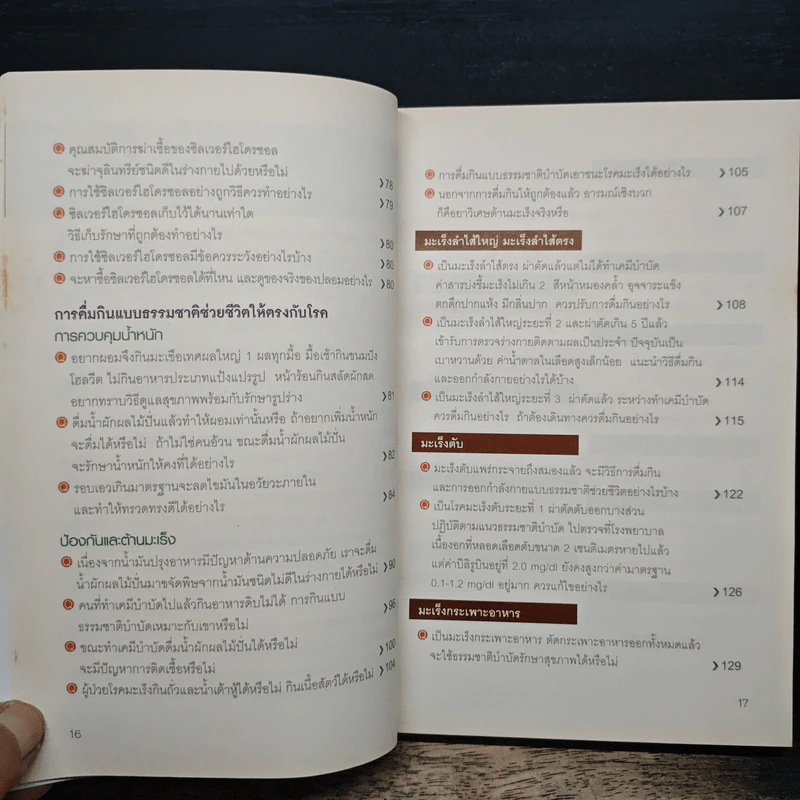 คุณสมบัติการฆ่าเชื้อของซิลเวอร์ไฮโดรซอล
จะฆ่าจุลินทรีย์ชนิดดีในร่างกายไปด้วยหรือไม่ ❯78
การใช้ซิลเวอร์ไฮโดรซอลอย่างถูกวิธีควรทำอย่างไร ❯79
ซิลเวอร์ไฮโดรซอลเก็บไว้ได้นานเท่าใด
วิธีเก็บรักษาที่ถูกต้องทำอย่างไร ❯80
การใช้ซิลเวอร์ไฮโดรซอลมีข้อควรระวังอย่างไรบ้าง ❯80
จะหาซื้อซิลเวอร์ไฮโดรซอลได้ที่ไหน และดูของจริงของปลอมอย่างไร ❯80
การดื่มกินแบบธรรมชาติช่วยชีวิตให้ตรงกับโรค
การควบคุมน้ำหนัก
อยากผอมจึงกินมะเขือเทศผลใหญ่ 1 ผลทุกมื้อ มื้อเช้ากินขนมปัง
โฮลวีต ไม่กินอาหารประเภทแป้งแปรรูป หน้าร้อนกินสลัดผักสด
อยากทราบวิธีดูแลสุขภาพพร้อมกับรักษารูปร่าง ❯81
ดื่มน้ำผักผลไม้ปั่นแล้วทำให้ผอมเท่านั้นหรือ ถ้าอยากเพิ่มน้ำหนัก
จะดื่มได้หรือไม่ ถ้าไม่ใช่คนอ้วน ขณะดื่มน้ำผักผลไม้ปั่น
จะรักษาน้ำหนักให้คงที่ได้อย่างไร ❯82
รอบเอวเกินมาตรฐานจะลดไขมันในอวัยวะภายใน
และทำให้ทรวดทรงดีได้อย่างไร ❯84
ป้องกันและต้านมะเร็ง
เนื่องจากน้ำมันปรุงอาหารมีปัญหาด้านความปลอดภัย เราจะดื่ม
น้ำผักผลไม้ปั่นมาขจัดพิษจากน้ำมันชนิดไม่ดีในร่างกายได้หรือไม่ ❯90
คนที่ทำเคมีบำบัดไปแล้วกินอาหารดิบไม่ได้ การกินแบบ
ธรรมชาติบำบัดเหมาะกับเขาหรือไม่ ❯96
ขณะทำเคมีบำบัดดื่มน้ำผักผลไม้ปั่นได้หรือไม่
จะมีปัญหาการติดเชื้อหรือไม่ ❯100
ผู้ป่วยโรคมะเร็งกินถั่วและน้ำเต้าหู้ได้หรือไม่ กินเนื้อสัตว์ได้หรือไม่ ❯104
16
การดื่มกินแบบธรรมชาติบำบัดเอาชนะโรคมะเร็งได้อย่างไร ❯105
นอกจากการดื่มกินให้ถูกต้องแล้ว อารมณ์เชิงบวก
ก็คือยาวิเศษต้านมะเร็งจริงหรือ ❯107
มะเร็งลำไส้ใหญ่ มะเร็งลำไส้ตรง
เป็นมะเร็งลำไส้ตรง ผ่าตัดแล้วแต่ไม่ได้ทำเคมีบำบัด
ค่าสารบ่งชี้มะเร็งไม่เกิน 2 สีหน้าหมองคล้ำ อุจจาระแข็ง
ตกดึกปากแห้ง มีกลิ่นปาก ควรปรับการดื่มกินอย่างไร ❯108
เป็นมะเร็งลำไส้ใหญ่ระยะที่ 2 และผ่าตัดเกิน 5 ปีแล้ว
เข้ารับการตรวจร่างกายติดตามผลเป็นประจำ ปัจจุบันเป็น
เบาหวานด้วย ค่าน้ำตาลในเลือดสูงเล็กน้อย แนะนำวิธีดื่มกิน
และออกกำลังกายอย่างไรได้บ้าง ❯114
เป็นมะเร็งลำไส้ใหญ่ระยะที่ 3 ผ่าตัดแล้ว ระหว่างทำเคมีบำบัด
ควรดื่มกินอย่างไร ถ้าต้องเดินทางควรดื่มกินอย่างไร ❯115
มะเร็งตับ
มะเร็งตับแพร่กระจายถึงสมองแล้ว จะมีวิธีการดื่มกิน
และการออกกำลังกายแบบธรรมชาติช่วยชีวิตอย่างไรบ้าง ❯122
เป็นโรคมะเร็งตับระยะที่ 1 ผ่าตัดตับออกบางส่วน
ปฏิบัติตามแนวธรรมชาติบำบัด ไปตรวจที่โรงพยาบาล
เนื้องอกที่หลอดเลือดตับขนาด 2 เซนติเมตรหายไปแล้ว
แต่ค่าบิลิรูบินอยู่ที่ 2.0 mg/dl ยังคงสูงกว่าค่ามาตรฐาน
0.1-1.2 mg/dl อยู่มาก ควรแก้ไขอย่างไร ❯126
มะเร็งกระเพาะอาหาร
เป็นมะเร็งกระเพาะอาหาร ตัดกระเพาะอาหารออกทั้งหมดแล้ว
จะใช้ธรรมชาติบำบัดรักษาสุขภาพได้หรือไม่ ❯129
17